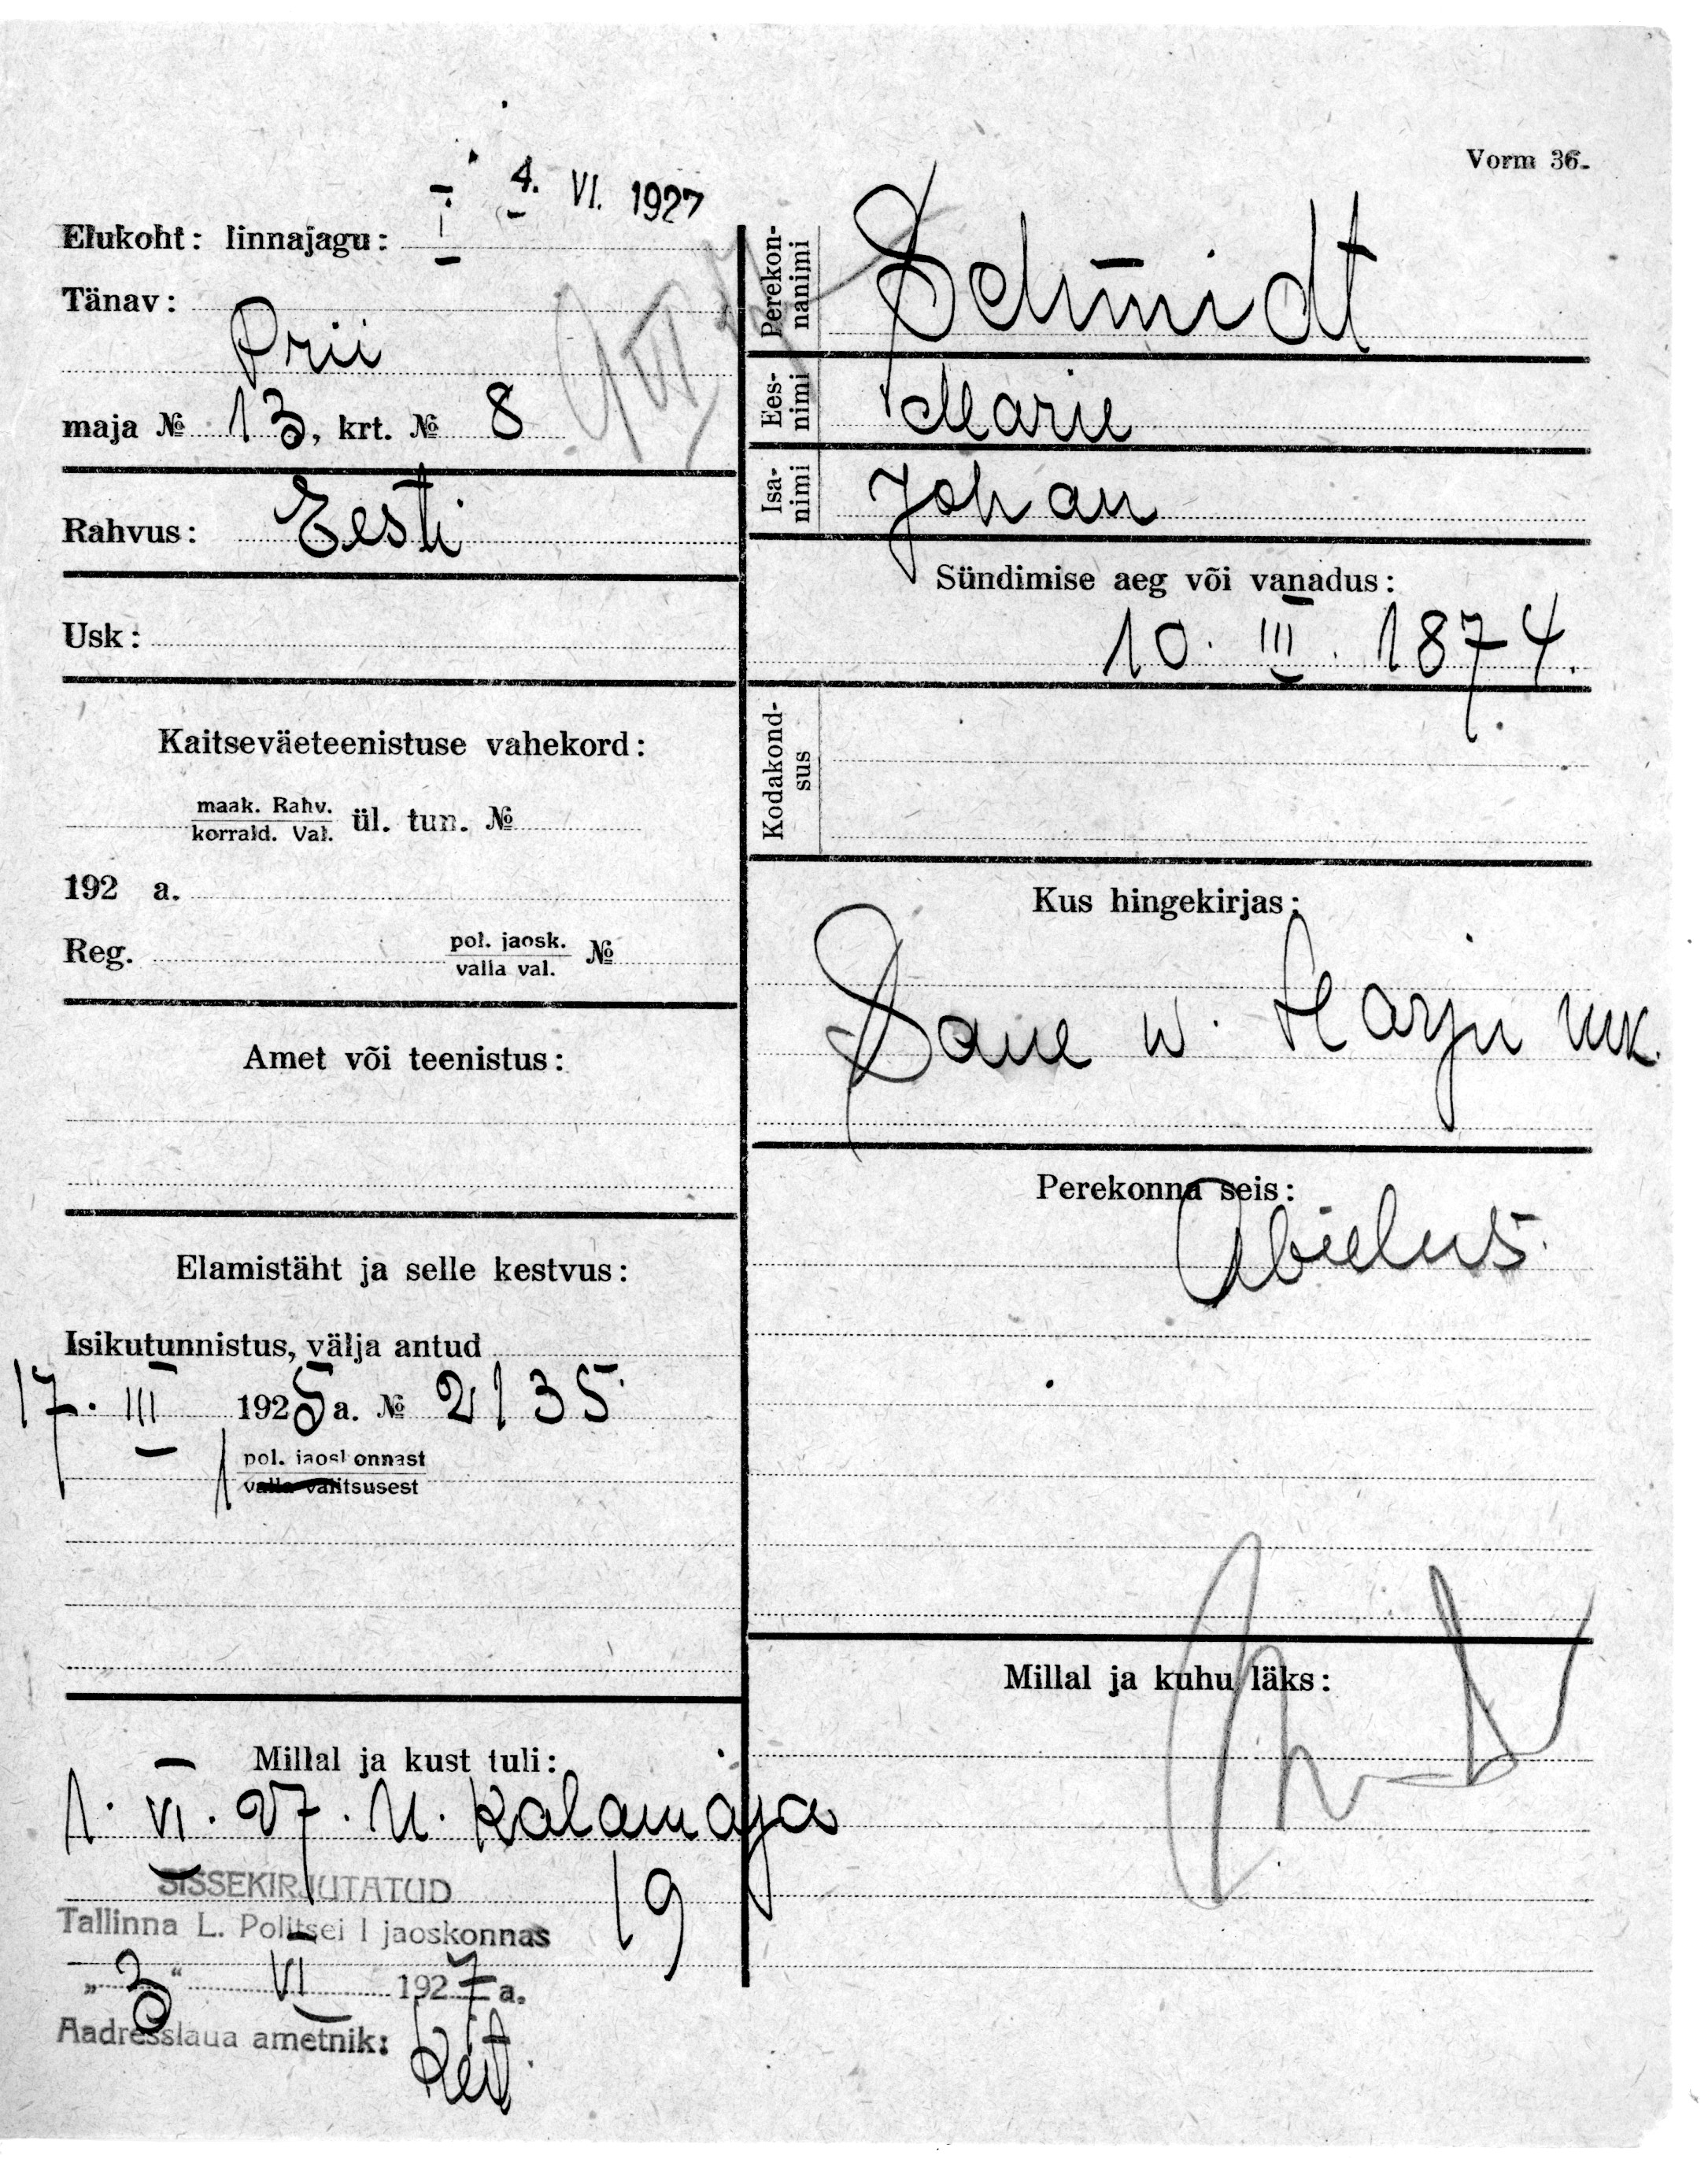 Vorm 36.
4. VI. 1927
Elukoht: linnajagu: I
Tänav:
Prii
maja № 13, krt. № 8
Rahvus: Eesti
Usk:
Kaitseväeteenistuse vahekord:
maak. Rahv.
korrald. Val. ül. tun. №
192 a.
Reg. pol. jaosk.
valla val. №
Amet või teenistus:
Elamistäht ja selle kestvus:
Isikutunnistus, välja antud
17. III 1925 a. № 2135
1 pol. jaoskonnast
valla valitsusest
Millal ja kust tuli:
1. VI. 27. U. Kalamaja
19
SISSEKIRJUTATUD
Tallinna L. Politsei I jaoskonnas
„3“ VI 1927 a.
Aadresslaua ametnik:
Perekon-
nanimi
Schmidt
Ees-
nimi
Marie
Isa-
nimi
Johan
Sündimise aeg või vanadus:
10. III. 1874.
Kodakond-
sus
Kus hingekirjas:
Saue w. Harju mk.
Perekonna seis:
Abielus.
Millal ja kuhu läks: